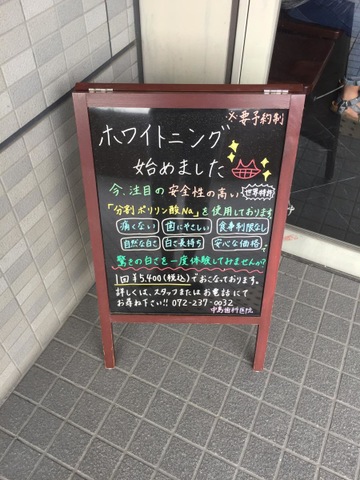 ※要予約制
ホワイトニング
始めました
今、注目の安全性の高い 世界特許
「分割ポリリン酸Na」を使用しております
痛くない 歯にやさしい 食事制限なし
自然な白さ 白さ長持ち 安心な価格
驚きの白さを一度体験してみませんか?
1回¥5,400(税込)でおこなっております。
詳しくは、スタッフまたはお電話にて
お尋ね下さい!! 072-237-0032
中島歯科医院